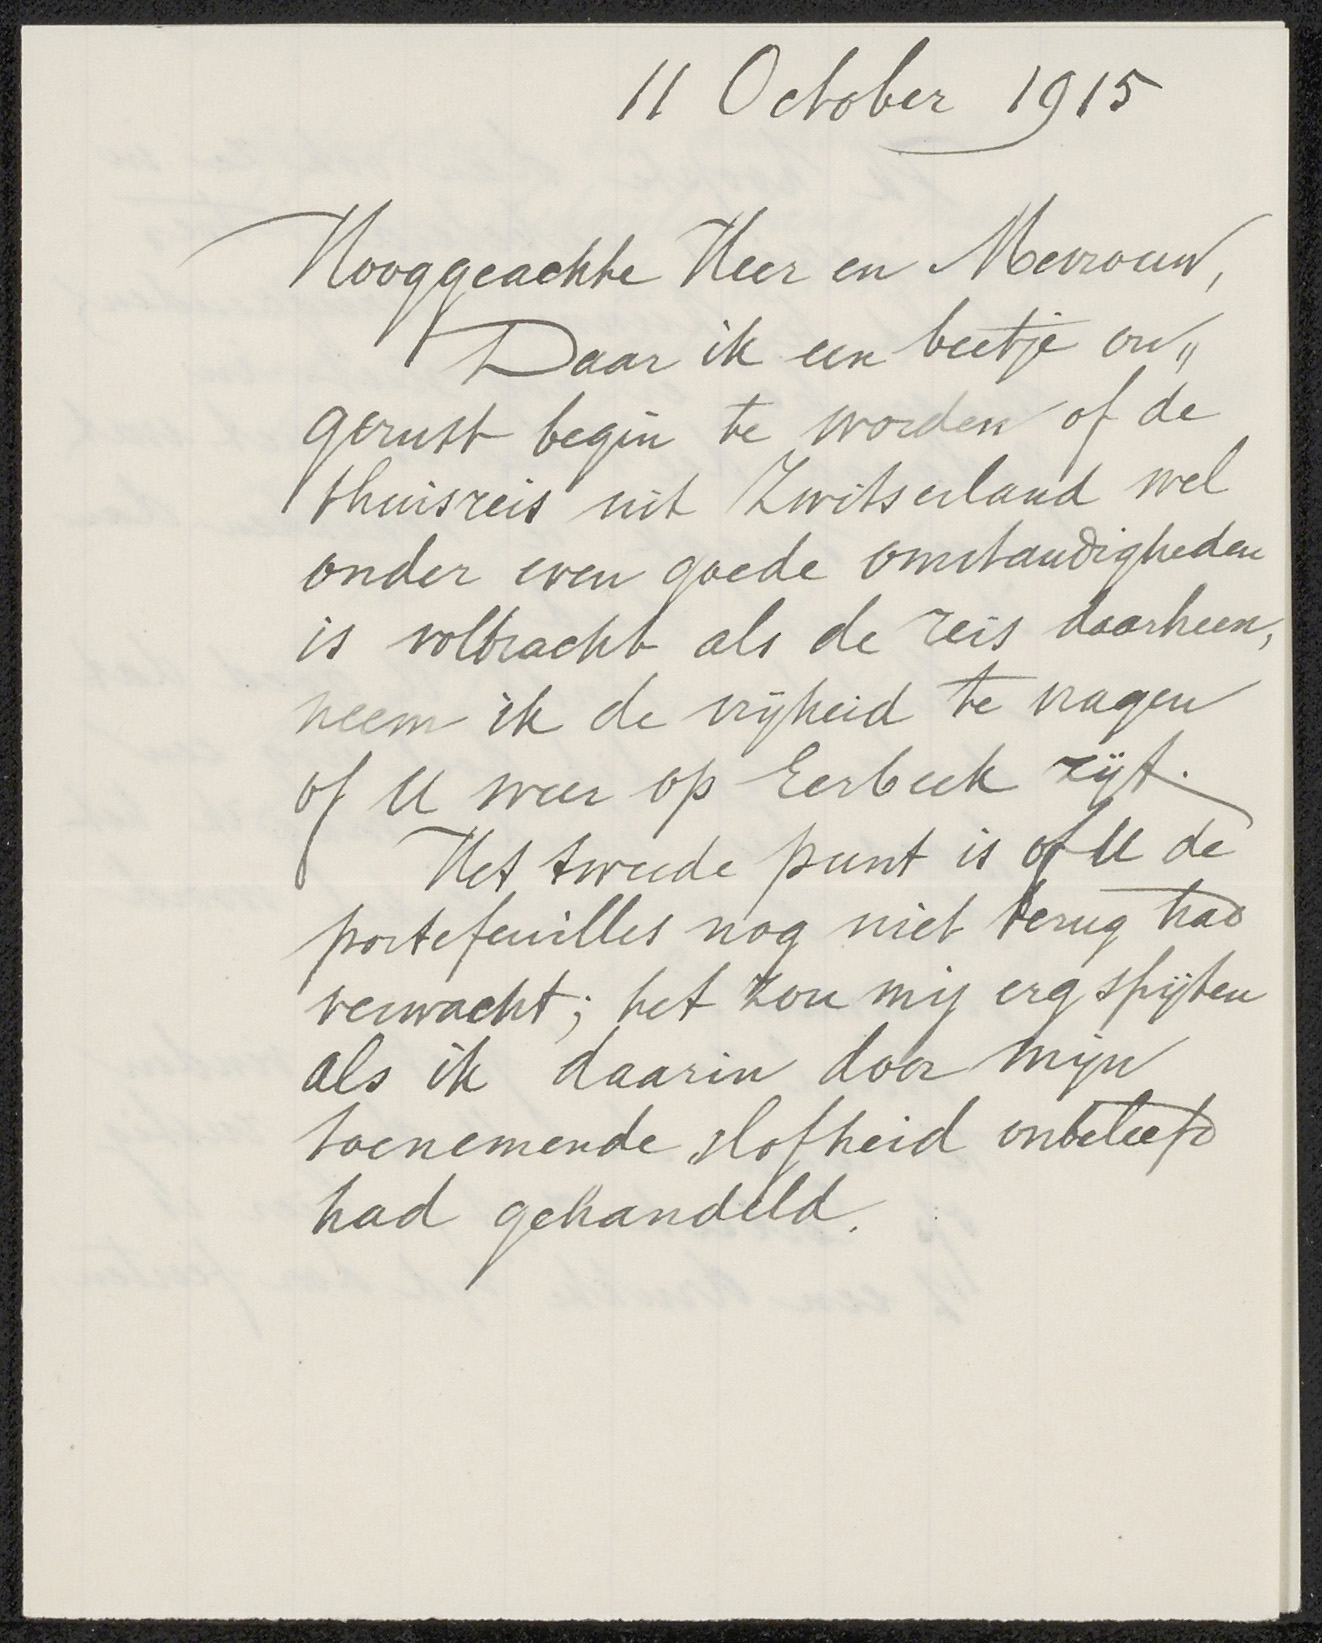 11 October 1915
Hooggeachte Heer en Mevrouw,
Daar ik een beetje on„
gerust begin te worden of de
thuisreis uit Zwitserland wel
onder even goede omstandigheden
is volbracht als de reis daarheen,
neem ik de vrijheid te vragen
of U weer op Eerbeek zijt.
Het tweede punt is of U de
portefeuilles nog niet terug had
verwacht; het zou mij erg spijten
als ik daarin door mijn
toenemende slofheid onbeleefd
had gehandeld.